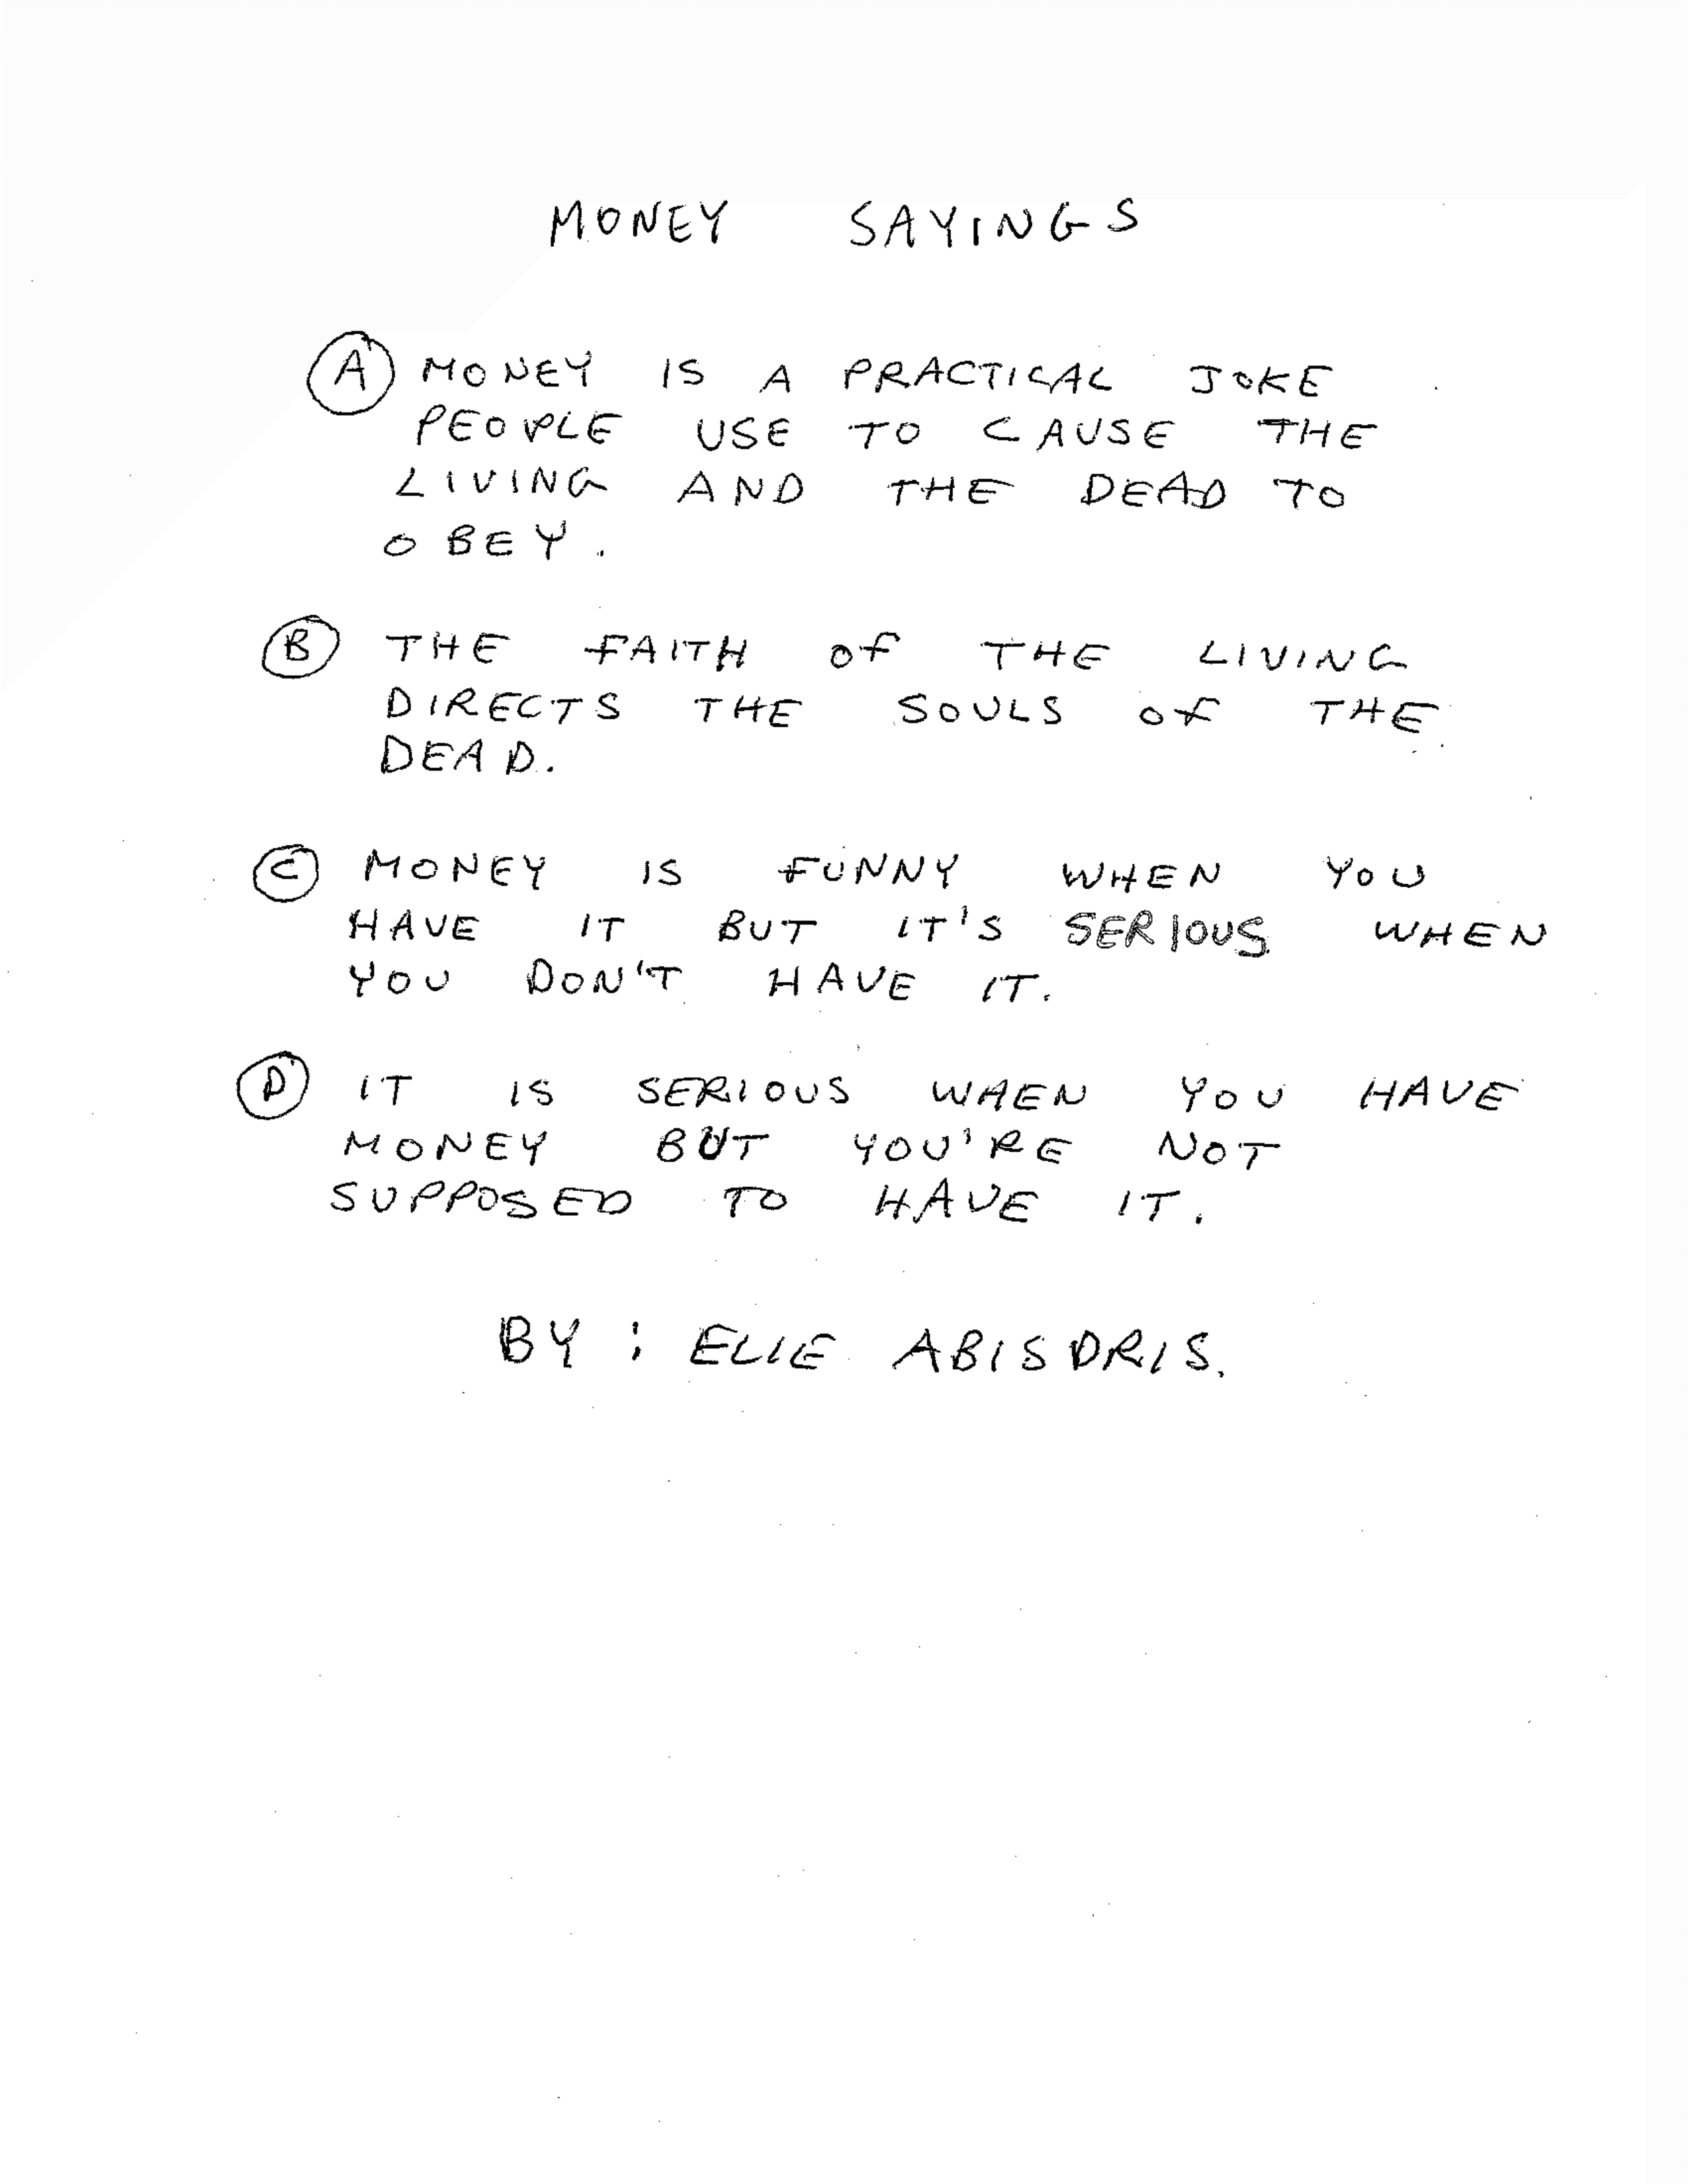 MONEY SAYINGS
A MONEY IS A PRACTICAL JOKE
PEOPLE USE TO CAUSE THE
LIVING AND THE DEAD TO
OBEY.
B THE FAITH of THE LIVING
DIRECTS THE SOULS of THE
DEAD.
C MONEY IS FUNNY WHEN YOU
HAVE IT BUT IT'S SERIOUS WHEN
YOU DON'T HAVE IT.
D IT IS SERIOUS WHEN YOU HAVE
MONEY BUT YOU'RE NOT
SUPPOSED TO HAVE IT.
BY : ELIE ABISDRIS.